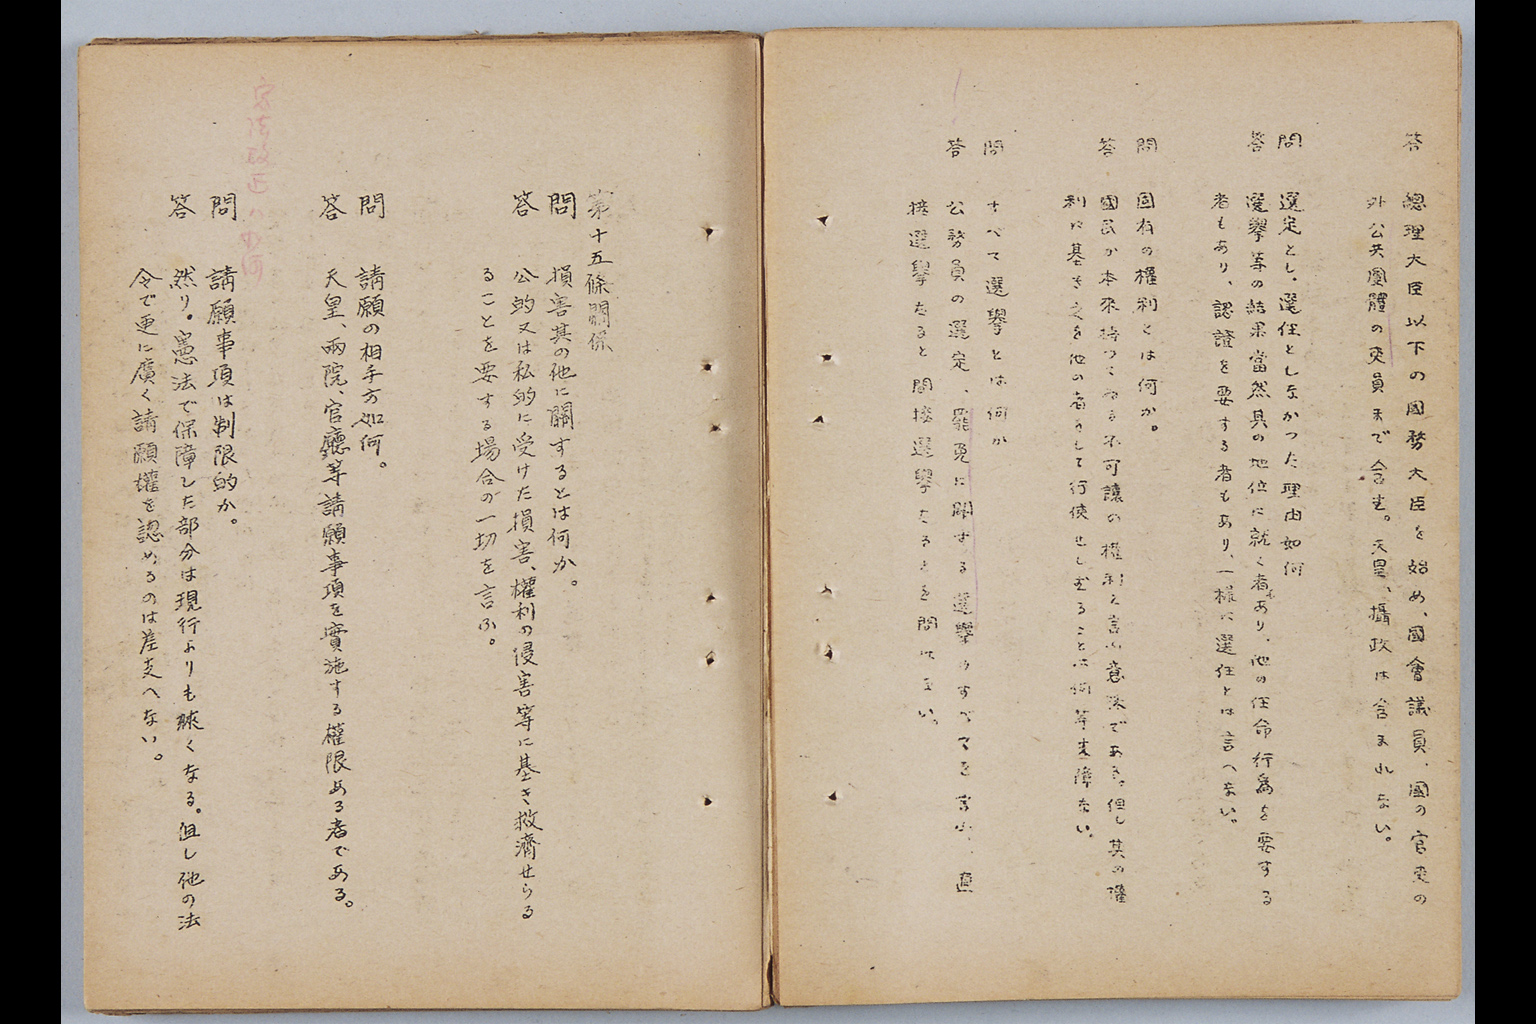 答　總理大臣以下の國務大臣を始め、國會議員、國の官吏の
外公共團體の吏員まで含む。天皇、攝政は含まれない。
問　選定とし。選任としなかった理由如何
答　選擧等の結果當然其の地位に就く者もあり、他の任命行爲を要する
者もあり、認證を要する者もあり、一樣に選任とは言へない。
問　固有の權利とは何か。
答　國民が本來持つてゐる不可讓の權利と言ふ意味である。但し其の權
利に基き之を他の者をして行使せしむることは何等支障ない。
問　すべて選擧とは何か
答　公務員の選定、罷免に關する選擧のすべてを言ふ、直
接選擧なると間接選擧なるとを問はない。
第十五條關係
問　損害其の他に關するとは何か。
答　公的又は私的に受けた損害、權利の侵害等に基き救濟せらる
ることを要する場合の一切を言ふ。
問　請願の相手方如何。
答　天皇、兩院、官廳等請願事項を實施する權限ある者である。
憲法改正ハ如何
問　請願事項は制限的か。
答　然り。憲法で保障した部分は現行よりも狹くなる。但し他の法
令で更に廣く請願權を認めるのは差支へない。